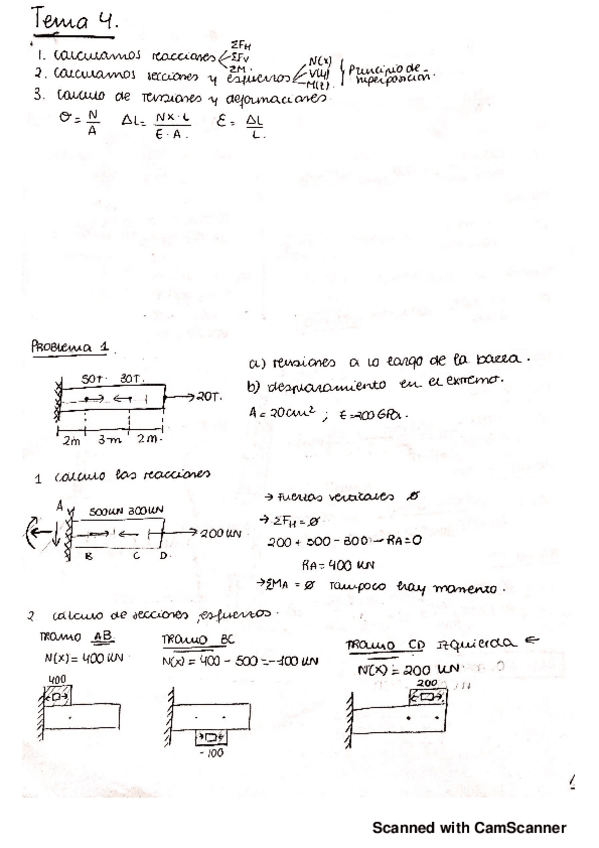 Tema 4.
1. Calculamos reacciones ΣFH ΣFV ΣM.
2. Calculamos secciones y esfuerzos N(x) V(y) M(z) } Principio de superposición.
3. Cálculo de tensiones y deformaciones
σ = N/A ΔL = Nx·L/E·A. ε = ΔL/L.
PROBLEMA 1.
a) Tensiones a lo largo de la barra.
b) desplazamiento en el extremo.
A = 20cm² ; E=200GPa.
50T. 30T.
20T.
2m 3m 2m.
1 Calculo las reacciones
A 500kN 300kN
200kN
B C D.
→ Fuerzas verticales ∅
→ ΣFH = ∅
200 + 500 - 300 - RA = 0
RA = 400 kN
→ ΣMA = ∅ Tampoco hay momento.
2 cálculo de secciones, esfuerzos.
TRAMO AB
N(x) = 400 kN
400
TRAMO BC
N(x) = 400 - 500 = -100 kN
-100
TRAMO CD Izquierda ←
N(x) = 200 kN
200
Scanned with CamScanner